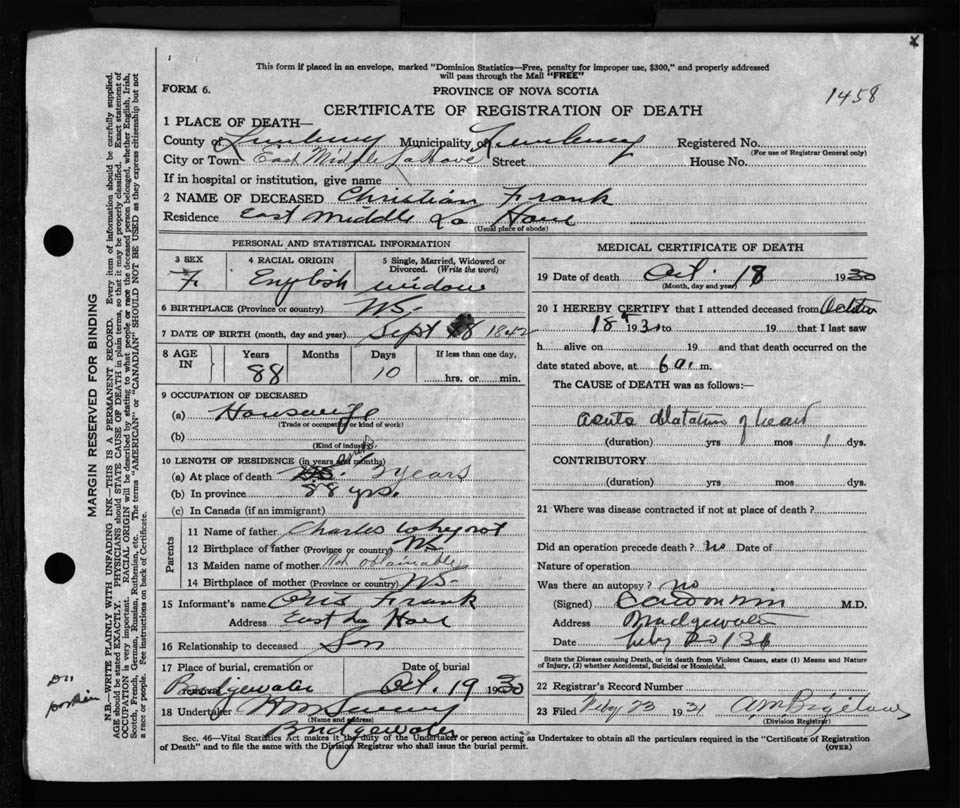 This form if placed in an envelope, marked "Dominion Statistics—Free, penalty for improper use, $300," and properly addressed
will pass through the Mail "FREE"
FORM 6.
PROVINCE OF NOVA SCOTIA
1458
CERTIFICATE OF REGISTRATION OF DEATH
1 PLACE OF DEATH—
County of Lunenburg Municipality of Lunenburg Registered No.
(For use of Registrar General only)
City or Town East Middle LaHave Street House No.
If in hospital or institution, give name
2 NAME OF DECEASED Christian Frank
Residence East Middle La Have
(Usual place of abode)
PERSONAL AND STATISTICAL INFORMATION
3 SEX 4 RACIAL ORIGIN 5 Single, Married, Widowed or
Divorced. (Write the word)
F. English widow
6 BIRTHPLACE (Province or country) N.S.
7 DATE OF BIRTH (month, day and year) Sept 8 1842
8 AGE IN Years Months Days If less than one day,
88 10 hrs. or min.
9 OCCUPATION OF DECEASED
(a) Housewife
(Trade or occupation or kind of work)
(b)
(Kind of industry)
10 LENGTH OF RESIDENCE (in years and months)
(a) At place of death years
(b) In province 88 yrs.
(c) In Canada (if an immigrant)
Parents
11 Name of father Charles Whynot
12 Birthplace of father (Province or country) N.S.
13 Maiden name of mother Not obtainable
14 Birthplace of mother (Province or country) N.S.
15 Informant's name Oris Frank
Address East La Have
16 Relationship to deceased Son
17 Place of burial, cremation or removal Date of burial
Bridgewater Oct. 19 1930
18 Undertaker
(Name and address)
Bridgewater
MEDICAL CERTIFICATE OF DEATH
19 Date of death Oct. 18 1930
(Month, day and year)
20 I HEREBY CERTIFY that I attended deceased from October
18 1930 to 19 that I last saw
h alive on 19 and that death occurred on the
date stated above, at 6 a. m.
The CAUSE of DEATH was as follows:—
acute dilatation of heart
(duration) yrs mos 1 dys.
CONTRIBUTORY
(duration) yrs mos dys.
21 Where was disease contracted if not at place of death?
Did an operation precede death? no Date of
Nature of operation
Was there an autopsy? no
(Signed) M.D.
Address Bridgewater
Date Feby
State the Disease causing Death, or in death from Violent Causes, state (1) Means and Nature
of Injury, (2) whether Accidental, Suicidal or Homicidal.
22 Registrar's Record Number
23 Filed Feby 23 1931 A M Bigelow
(Division Registrar)
Sec. 46—Vital Statistics Act makes it the duty of the Undertaker or person acting as Undertaker to obtain all the particulars required in the "Certificate of Registration
of Death" and to file the same with the Division Registrar who shall issue the burial permit.
(OVER)
MARGIN RESERVED FOR BINDING
N.B.—WRITE PLAINLY WITH UNFADING INK—THIS IS A PERMANENT RECORD. Every item of information should be carefully supplied.
AGE should be stated EXACTLY. PHYSICIANS should STATE CAUSE OF DEATH in plain terms, so that it may be properly classified. Exact statement of
OCCUPATION is very important. RACIAL ORIGIN will be described by stating to what people or race the deceased person belonged, whether English, Irish,
Scotch, French, German, Russian, Ruthenian, etc. The terms "AMERICAN" or "CANADIAN" SHOULD NOT BE USED as they express citizenship but not
a race or people. See instructions on back of Certificate.